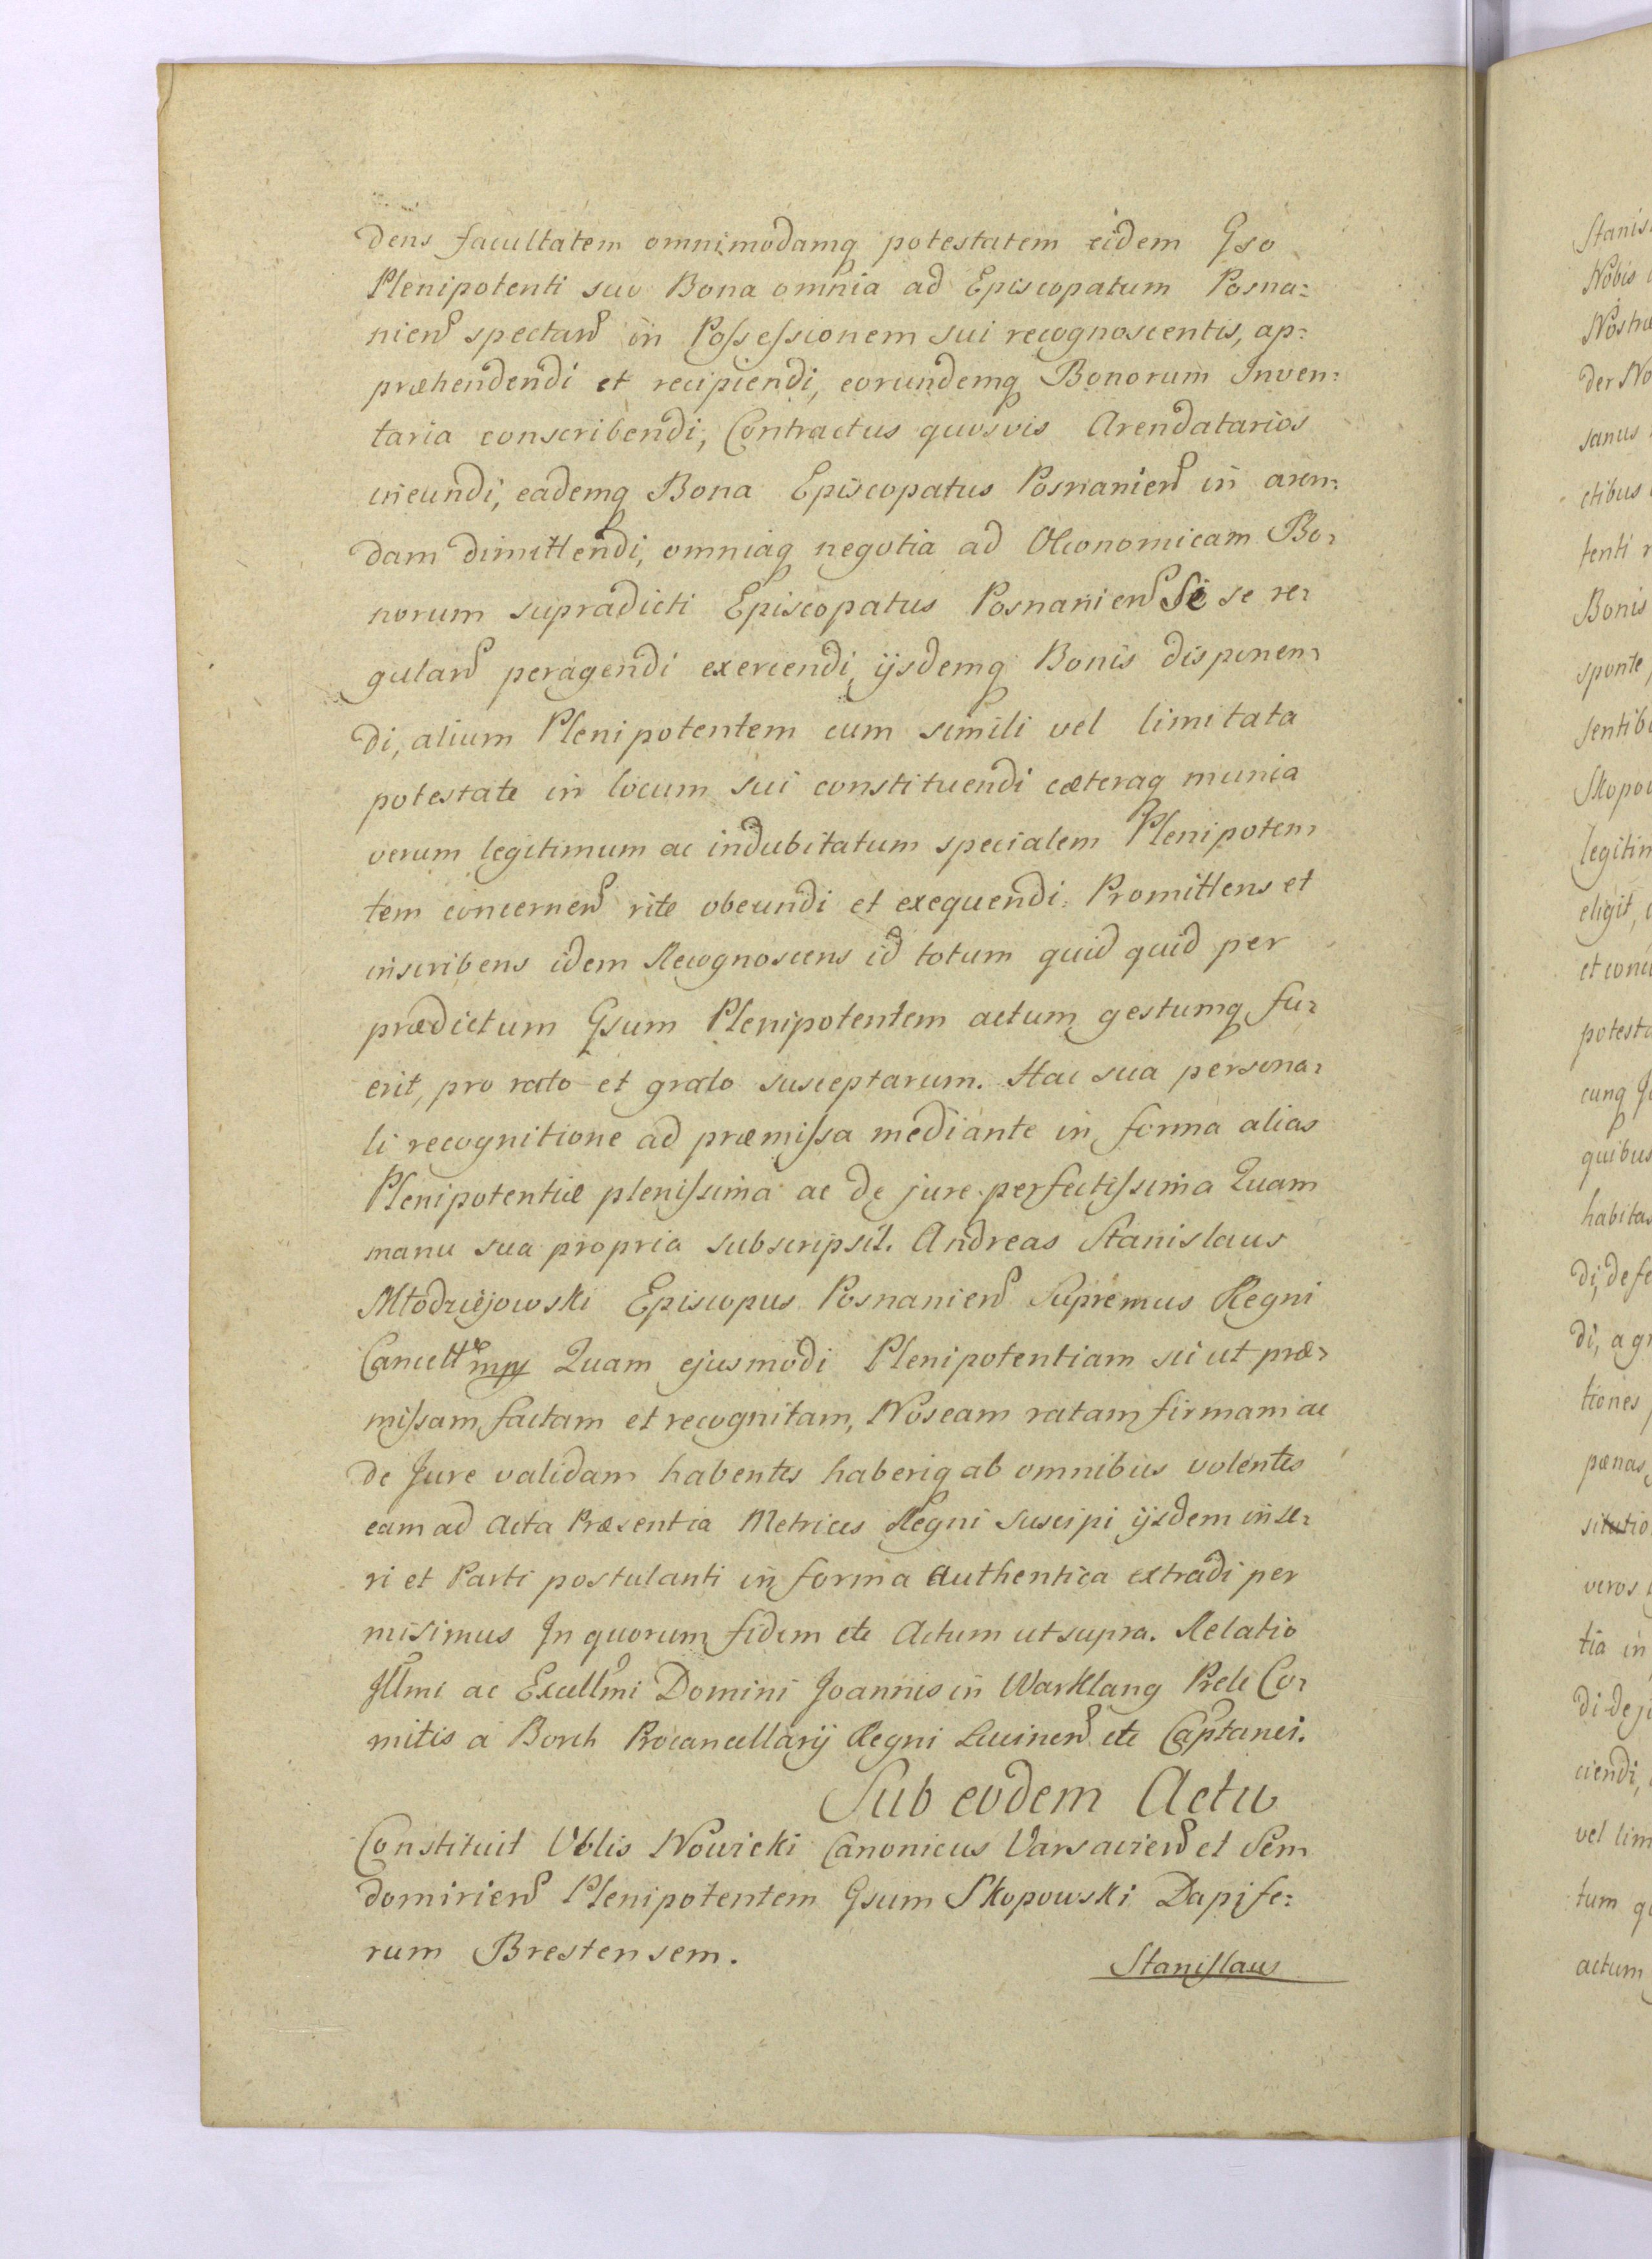 dens facultatem omnimodamq potestatem eidem Gso
Plenipotenti suo Bona omnia ad Episcopatum Posna:
nien spectan in Possessionem sui recognoscentis, ap:
præhendendi et recipiendi, eorundemq Bonorum Inven:
taria conscribendi, Contractus quosvis Arendatarios
ineundi, eademq Bona Episcopatus Posnanien in aren:
dam dimittendi, omniaq negotia ad Oeconomicam Bo:
norum supradicti Episcopatus Posnanien se re:
gulan peragendi exercendi, ijsdemq Bonis disponen:
di, alium Plenipotentem cum simili vel limitata
potestate in locum sui constituendi cæteraq munia
verum legitimum ac indubitatum specialem Plenipoten:
tem concernen rite obeundi et exequendi. Promittens et
inscribens idem Recognoscens id totum quid quid per
prædictum Gsum Plenipotentem actum gestumq fu:
erit, pro rato et grato suscepturum. Hac sua persona:
li recognitione ad præmissa mediante in forma alias
Plenipotentiæ plenissima ac de jure perfectissima Quam
manu sua propria subscripsit. Andreas Stanislaus
Młodziejowski Episcopus Posnanien Supremus Regni
Cancell mpp Quam ejusmodi Plenipotentiam sic ut præ:
missam, factam et recognitam, Nos eam ratam firmam ac
de Jure validam habentes haberiq ab omnibus volentes
eam ad Acta Præsentia Metrices Regni suscipi ijsdem inse:
ri et Parti postulanti in forma Authentica extradi per
misimus In quorum fidem etc Actum ut supra. Relatio
Illmi ac Excellmi Domini Joannis in Warklang Prele Co:
mitis a Borch Procancellarij Regni Lucinen etc Captanei.
Sub eodem Actu
Constituit Vblis Nowicki Canonicus Varsavien et Sen
domirien Plenipotentem Gsum Skopowski Dapife:
rum Brestensem.
Stanislaus